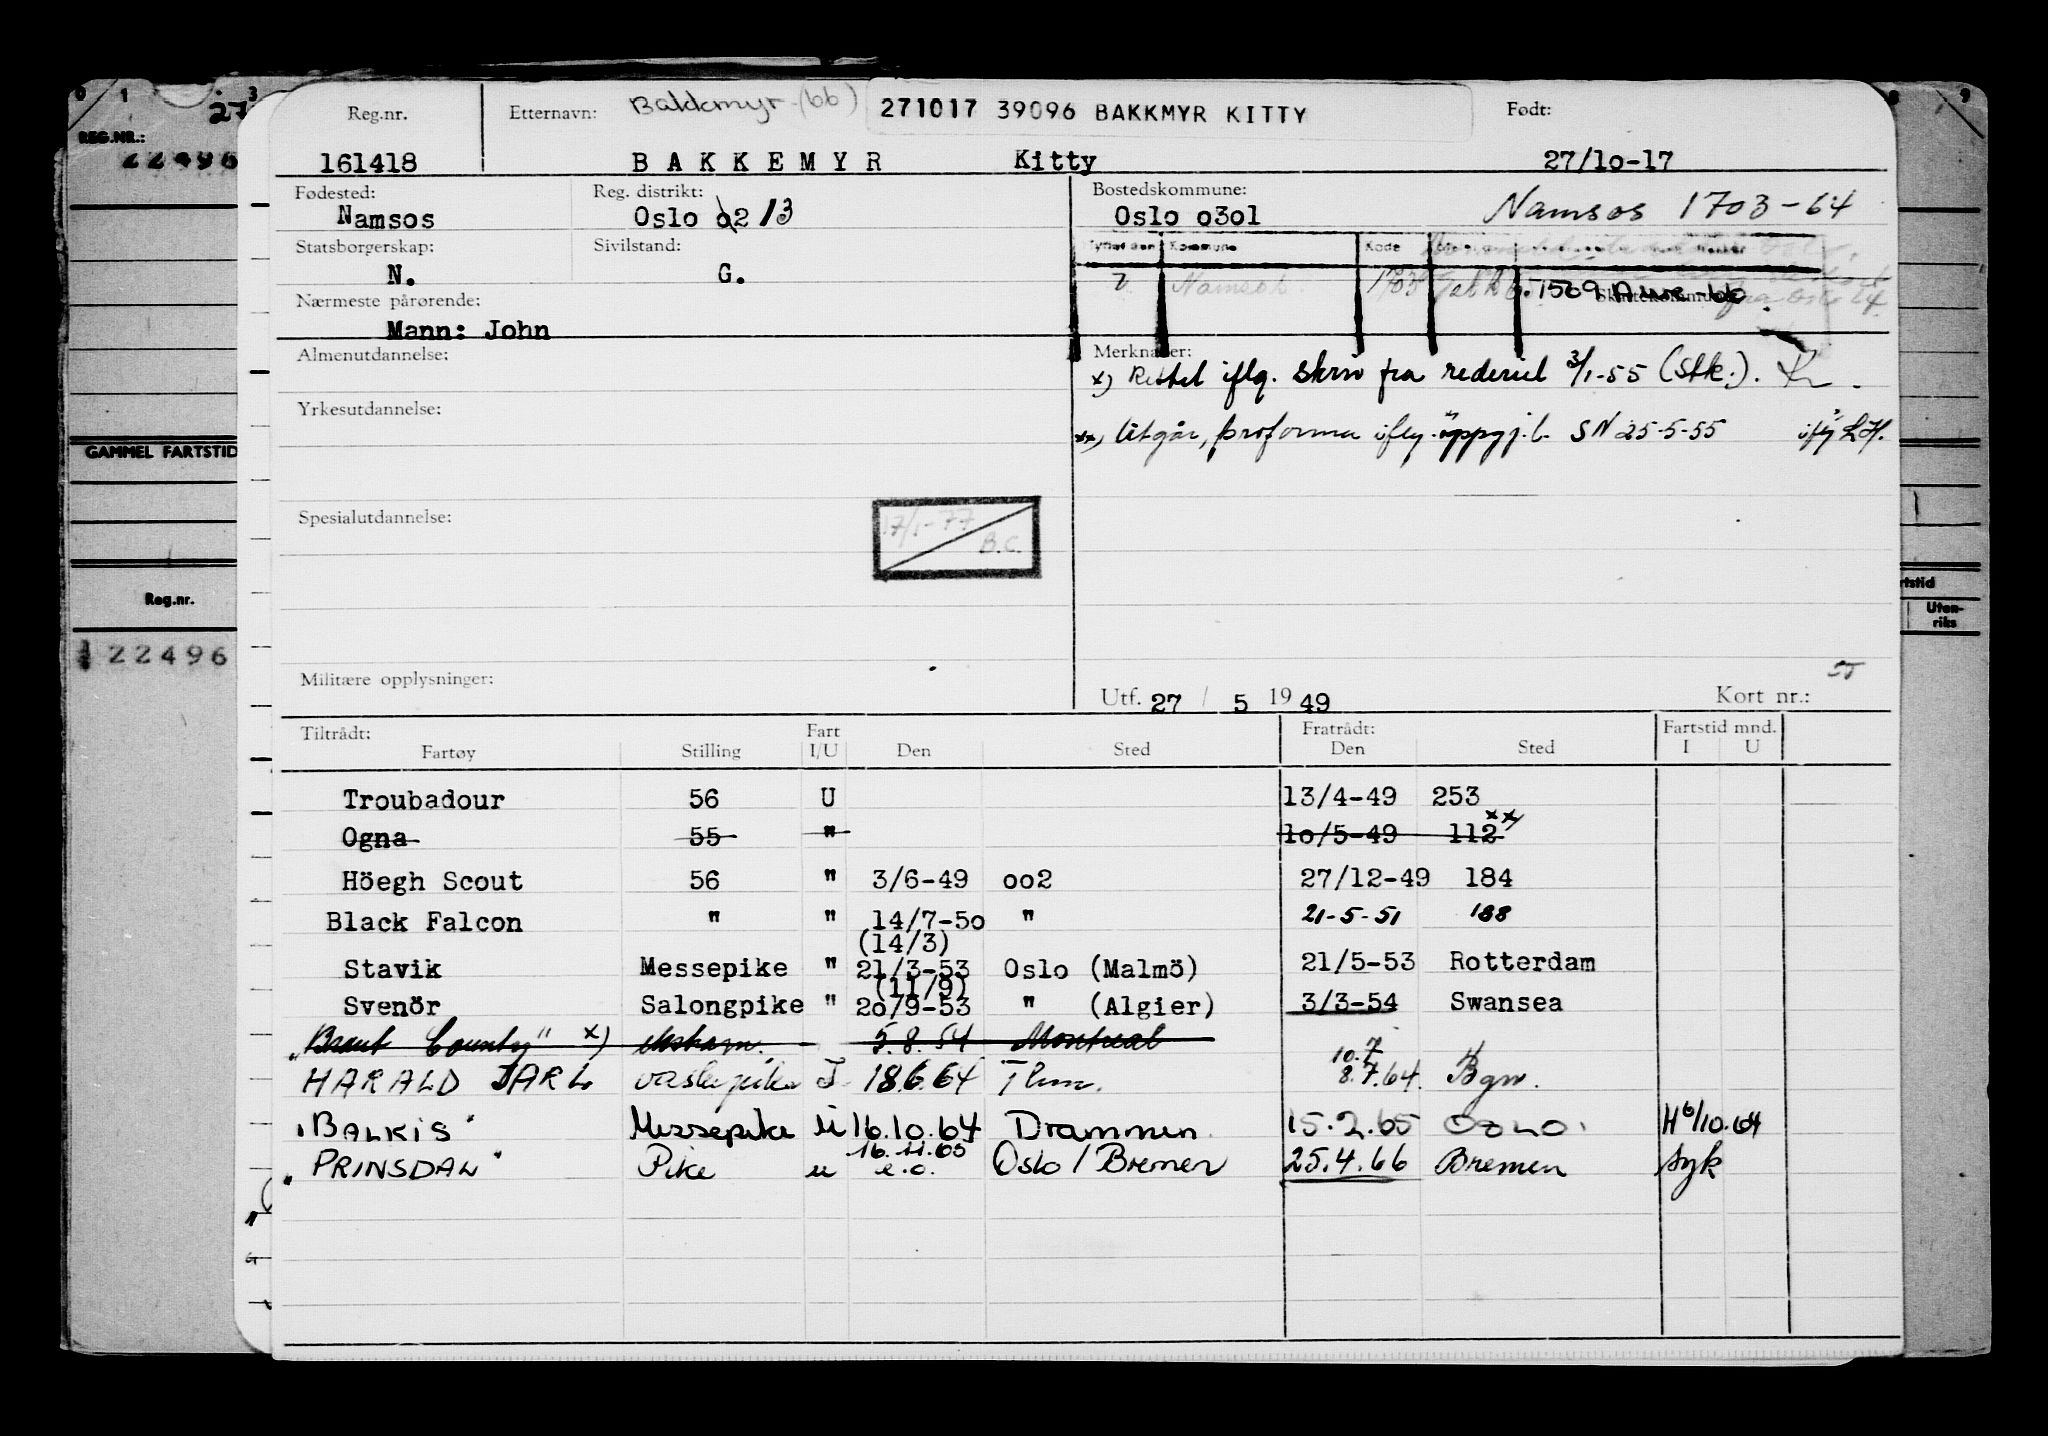 0 1 3 8 9
27
REG.NR.:
22496
GAMMEL FARTSTID
Reg.nr.
122496
rtstid
Uten-
riks
Reg.nr. Etternavn: Bakkmyr (66) 271017 39096 BAKKMYR KITTY Født:
161418 BAKKEMYR Kitty 27/10-17
Fødested: Reg. distrikt: Bostedskommune:
Namsos Oslo 02 13 Oslo 0301 Namsos 1703-64
Statsborgerskap: Sivilstand: Kommune Kode
N. G. Namsos 1703
Nærmeste pårørende:
Mann: John
Almenutdannelse: Merknader:
x) Rettet iflg. skriv fra rederiet 3/1-55 (Stk.).
Yrkesutdannelse:
xx) Utgår, proforma iflg. oppgj.b. SN 25-5-55
Spesialutdannelse: 17/1-77
B.C.
Militære opplysninger:
Utf. 27 / 5 19 49 Kort nr.:
Tiltrådt: Fart Fratrådt: Fartstid mnd.
Fartøy Stilling I/U Den Sted Den Sted I U
Troubadour 56 U 13/4-49 253
Ogna 55 " 10/5-49 112 xx)
Höegh Scout 56 " 3/6-49 002 27/12-49 184
Black Falcon " " 14/7-50 " 21-5-51 188
(14/3)
Stavik Messepike " 21/3-53 Oslo (Malmö) 21/5-53 Rotterdam
(11/9)
Svenör Salongpike " 20/9-53 " (Algier) 3/3-54 Swansea
"Brant County" x) 5.8.54 Montreal
10.7
HARALD JARL vaskepike I 18.6.64 Thm. 8.7.64. Bgn.
"BALKIS" Messepike U 16.10.64 Drammen 15.2.65 OSLO. H 6/10.64
16.11.65
"PRINSDAL" Pike u e.o. Oslo / Bremen 25.4.66 Bremen syk